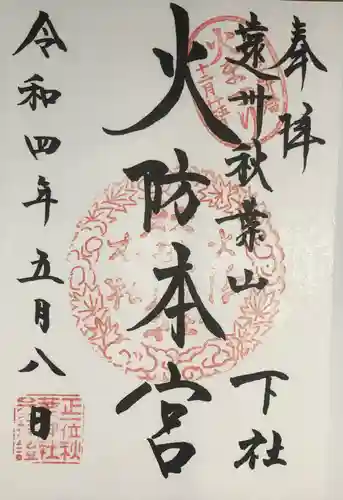 奉拝
遠州秋葉山 下社
火防本宮
令和四年五月八日
正一位秋